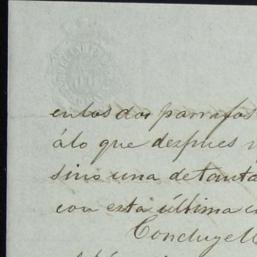 en los dos parrafos
álo que despues
sinó una de tanta
con esta última
Concluye